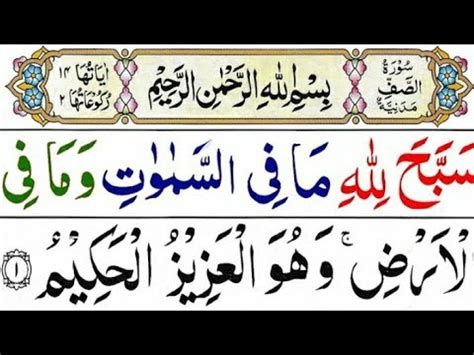 سُوْرَةُ الصَّفِّ مَدَنِيَّةٌ
بِسْمِ اللهِ الرَّحْمٰنِ الرَّحِيْمِ
اٰيَاتُهَا ١٤ رُكُوْعَاتُهَا ٢
سَبَّحَ لِلّٰهِ مَا فِى السَّمٰوٰتِ وَمَا فِى
الْاَرْضِ ۚ وَهُوَ الْعَزِيْزُ الْحَكِيْمُ ١